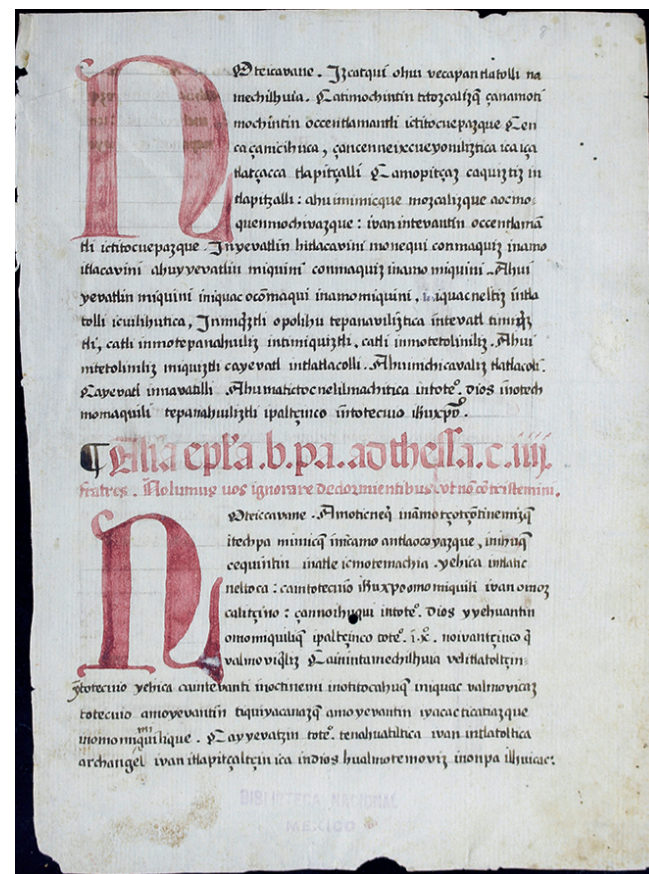 Noteicavane. Izcatqui ohui vecapantlatolli na
mechilhuia. Catimochintin titozcalizq̄ çanamoti
mochintin occentlamantli ictitocuepazque Cen
ca çanicihuca, çancenneixcueyoniliztica ica iça
tlatçacca tlapitçalli Camopitçaz caquiztiz in
tlapitzalli: ahu inmimicque mozcalizque aocmo
quenmochivazque: ivan intevantin occentlamā
tli ictitocuepazque. Inyevatlin hitlacavini monequi conmaquiz inamo
itlacavini ahuyyevatlin miquini conmaquiz inamo miquini. Ahui
yevatlin miquini iniquac ocōmaqui inamomiquini, iquac neltiz intla
tolli icuilihutica, Inmiq̄ztli opolihu tepanaviliztica intevatl timiq̄z
tli, catli inmotepanahuiliz intimiquiztli. catli inmotetoliniliz. Ahui
nitetoliniliz miquiztli cayevatl intlatlacolli. Ahuinchicavaliz tlatlacoli
Cayevatl innavatilli. Ahu matictocnelilmachitica intote⁰. dios inotech
momaquili tepanahuiliztli ipaltçinco intotecuio iħuxp̄o.
¶ Alia epl̄a .b. pa. ad thessa. c. iiij.
fratres. Nolumus vos ignorare de dormientibus. vt non cōtristemini.
Noteiccavane. Amoticneq̄ inamotçotçontinemizq̄
itechpa mimicq̄ inicamo antlaocoyazque, inihuq̄
cequintin inatle icmotemachia. yehica intlatic
neltoca: caintotecuiō iħuxpo omomiquili ivan omoz
calitçino: çannoihuqui intote⁰. dios yyehuantin
omomiquiliq̄ ipaltçinco tote⁰. i.x̄. noivantçinco q̄
valmoviq̄liz Cainintamechilhuia velitlatoltzin
totecuio yehica cauntevanti inoctinemi inotitocahuq̄ iniquac valmovicaz
totecuio amoyevantin tiquiyacanazq̄ amoyevantin iyacac ticatiazque
inomomiquilique. Cayyevatzin tote⁰. tenahuatiltica ivan intlatoltica
archangel ivan itlapitçaltçin ica indios hualmotemoviz inonpa ilhuicac:
BIBLIOTECA NACIONAL
MEXICO